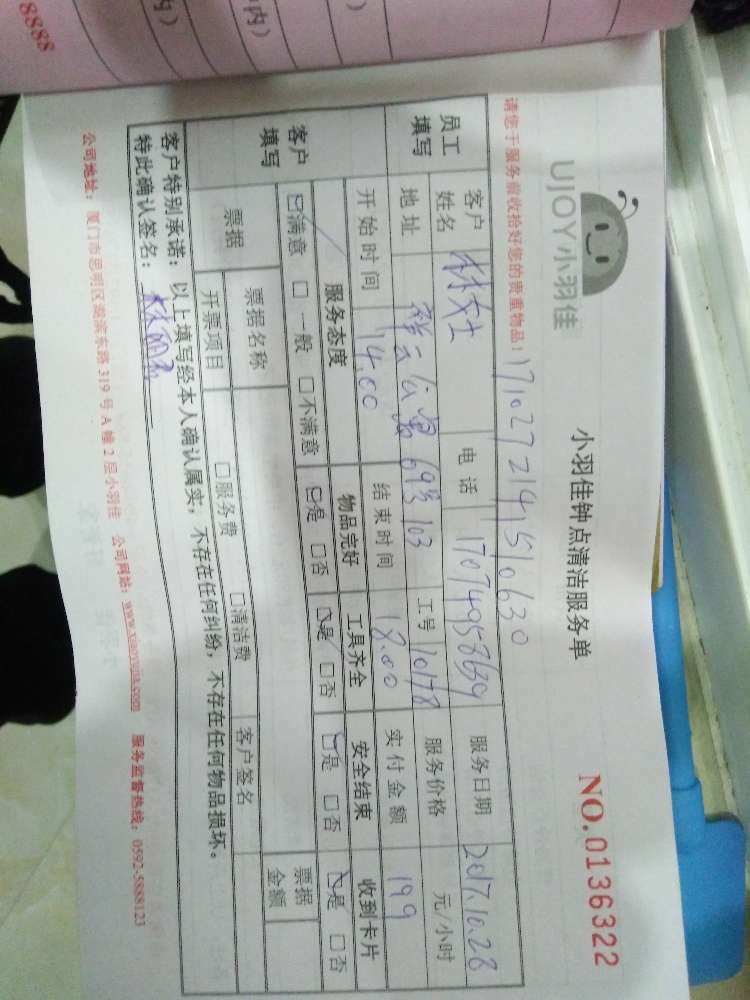 8888
内)
内)
)
UJOY小羽佳
小羽佳钟点清洁服务单
NO.0136322
请您于服务前收拾好您的贵重物品!
员工填写
客户姓名 林女士 电话 服务日期 2017.10.28
地址 69号103 工号 10178 服务价格 元/小时
开始时间 14.00 结束时间 18.00 实付金额 199
客户填写
服务态度 物品完好 工具齐全 安全结束 收到卡片
☑满意 □一般 □不满意 ☑是 □否 ☑是 □否 ☑是 □否 ☑是 □否
票据 票据名称 客户签名 票据金额
开票项目 □服务费 □清洁费
客户特别承诺:以上填写经本人确认属实,不存在任何纠纷,不存在任何物品损坏。
特此确认签名:
公司地址:厦门市思明区湖滨东路 319 号 A 幢 2 层小羽佳 公司网站:www.xiaoyujia.com 服务监督热线:0592-5888123